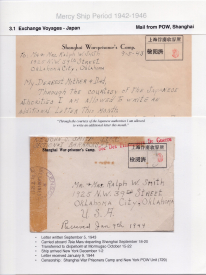 Mercy Ship Period 1942-1946
3.1 Exchange Voyages - Japan
Mail from POW, Shanghai
Shanghai War-prisoner's Camp.
Oklahoma City, Oklahoma
My Dearest Mother & Dad,
Through the courtesy of the Japanese
I am allowed to write an
additional letter this month
"Through the courtesy of the Japanese authorities I am allowed
to write an additional letter this month"
Shanghai War-prisoner's Camp.
Mr. & Mrs. Ralph W. Smith
1925 N.W. 39th Street
Oklahoma City, Oklahoma
U.S.A.
Received Jan 9th 1944
• Letter written September 5, 1943
• Carried aboard Teia Maru departing Shanghai September 19-20
• Transferred to Gripsholm at Mormugao October 15-22
• Ship arrived New York December 1-2
• Letter received January 9, 1944
• Censorship: Shanghai War Prisoners Camp and New York POW Unit